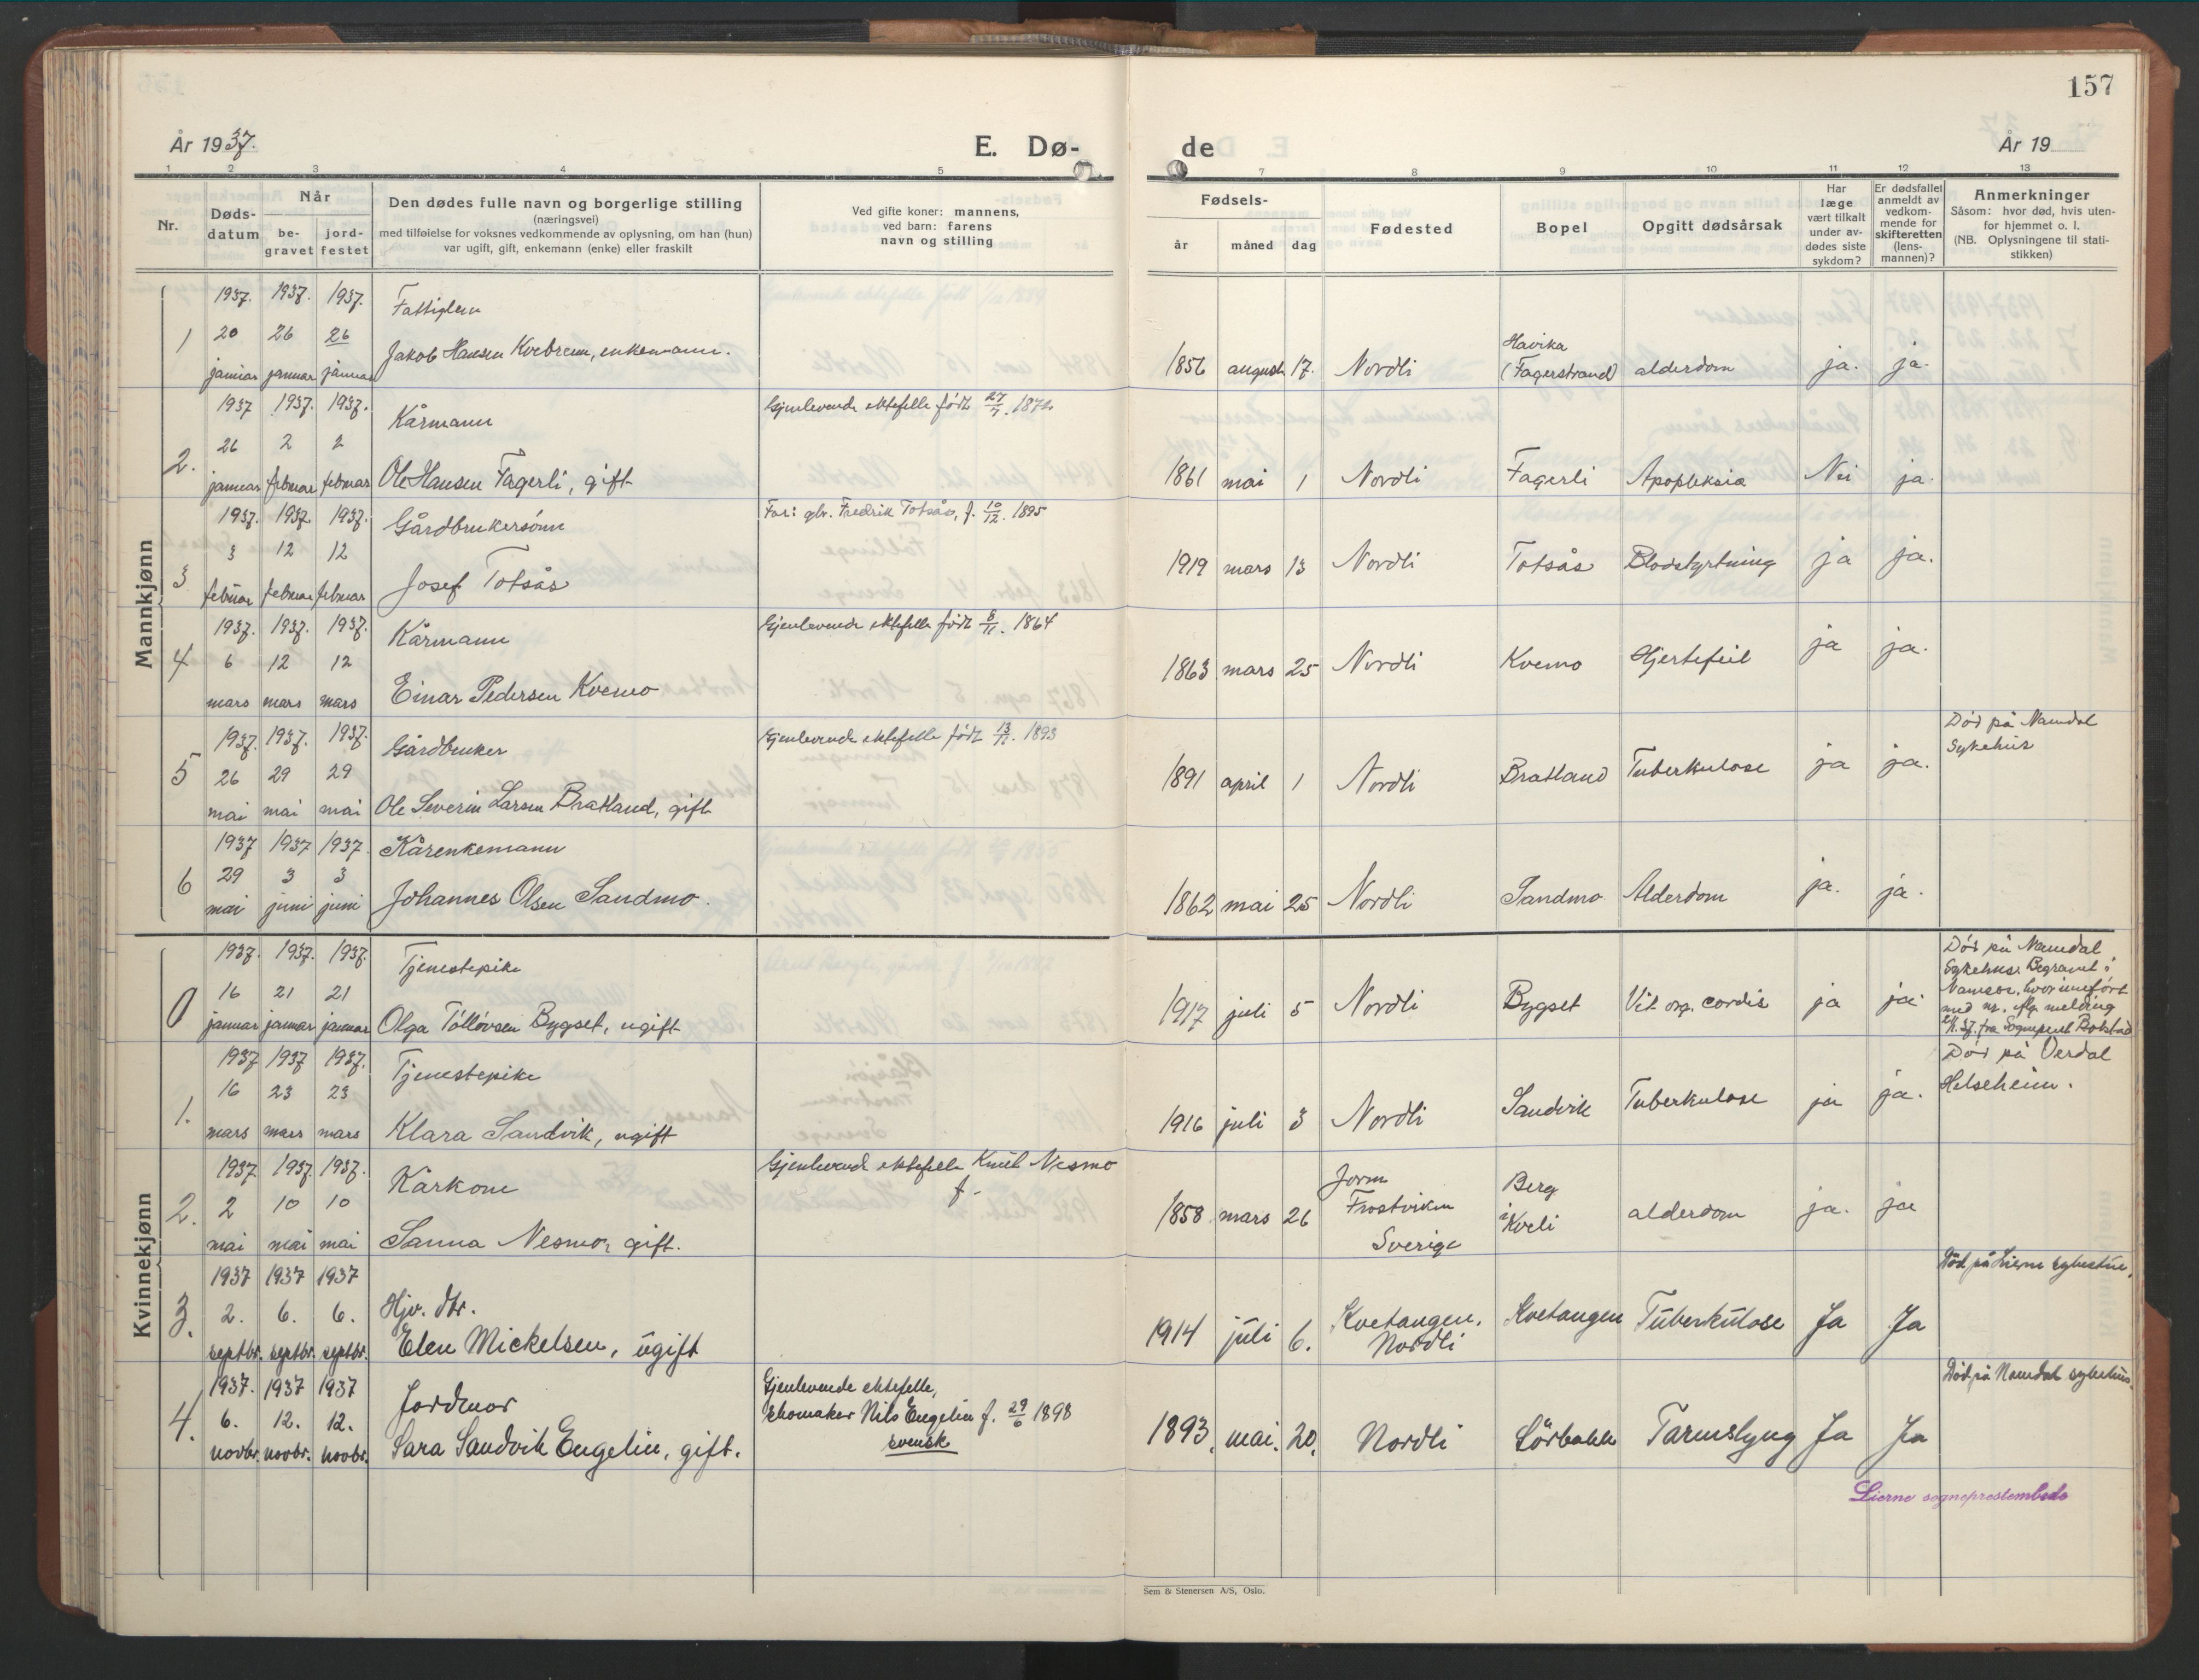 157
År 1937.
E. Dø-
de
År 19
1 2 3 4 5 7 8 9 10 11 12 13
Nr.
Døds-
datum
Når
be-
gravet
jord-
festet
Den dødes fulle navn og borgerlige stilling
(næringsvei)
med tilføielse for voksnes vedkommende av oplysning, om han (hun)
var ugift, gift, enkemann (enke) eller fraskilt
Ved gifte koner: mannens,
ved barn: farens
navn og stilling
Fødsels-
år måned dag
Fødested
Bopel
Opgitt dødsårsak
Har
læge
vært tilkalt
under av-
dødes siste
sykdom?
Er dødsfallet
anmeldt av
vedkom-
mende for
skifteretten
(lens-
mannen)?
Anmerkninger
Såsom: hvor død, hvis uten-
for hjemmet o. l.
(NB. Oplysningene til stati-
stikken)
Mannkjønn
1937. 1937. 1937. Fattiglem
1 20 26 26 Havika
januar januar januar Jakob Hansen Kvebrem, enkemann. 1856 august 17. Nordli (Fagerstrand) alderdom ja. ja.
1937 1937. 1937. Kårmann Gjenlevende ektefelle født 27/7. 1872
2. 26 2 2
januar februar februar Ole Hansen Fagerli, gift 1861 mai 1 Nordli Fagerli Apopleksia Nei ja.
1937. 1937. 1937. Gårdbrukersønn Far: gbr. Fredrik Totsås, f. 10/12. 1895
3 3 12 12 1919 mars 13 Nordli Totsås Blodstyrtning ja ja.
februar februar februar Josef Totsås
1937. 1937. 1937. Kårmann Gjenlevende ektefelle født 8/11. 1864
4 6 12 12 1863 mars 25 Nordli Kvemo Hjertefeil ja ja.
mars mars mars Einar Pedersen Kvemo
1937. 1937. 1937. Gårdbruker Gjenlevende ektefelle født 13/11. 1893 Død på Namdal
Sykehus
5 26 29 29 1891 april 1 Nordli Bratland Tuberkulose ja ja.
mai mai mai Ole Severin Larsen Bratland, gift
1937 1937 1937. Kårenkemann
6 29 3 3
mai juni juni Johannes Olsen Sandmo. 1862 mai 25 Nordli Sandmo Alderdom ja. ja.
Kvinnekjønn
1937. 1937. 1937. Tjenestepike Død på Namdal
Sykehus. Begravet i
0 16 21 21 Namsos, hvor innført
januar januar januar Olga Tölløvsen Bygset, ugift 1917 juli 5 Nordli Bygset Vit. org. cordis ja ja. med nr. melding
fra Sogneprest
1937 1937 1937. Tjenestepike Død på Verdal
Helseheim.
1. 16 23 23
mars mars mars Klara Sandvik, ugift 1916 juli 3 Nordli Sandvik Tuberkulose ja ja.
1937. 1937. 1937. Kårkone Gjenlevende ektefelle Knut Nesmo
f. -
Jorm Berg
2. 2 10 10 1858 mars 26 Frostviken i Kveli alderdom ja. ja
mai mai mai Sanna Nesmo, gift. Sverige
1937 1937 1937 Død på Lierne sykestue.
3. 2. 6. 6. Hjv. dtr.
septbr. septbr. septbr. Elen Mickelsen, ugift 1914 juli 6. Kvetangen, Kvetangen Tuberkulose Ja Ja
Nordli
1937. 1937 1937 Jordmor Gjenlevende ektefelle, Død på Namdal sykehus.
4. 6. 12. 12. skomaker Nils Engelin f. 29/6 1898
svensk
novbr. novbr. novbr. Sara Sandvik Engelin, gift. 1893. mai. 20. Nordli Sörbakk Tarmslyng Ja Ja
Lierne sogneprestembede
Sem & Stenersen A/S, Oslo.